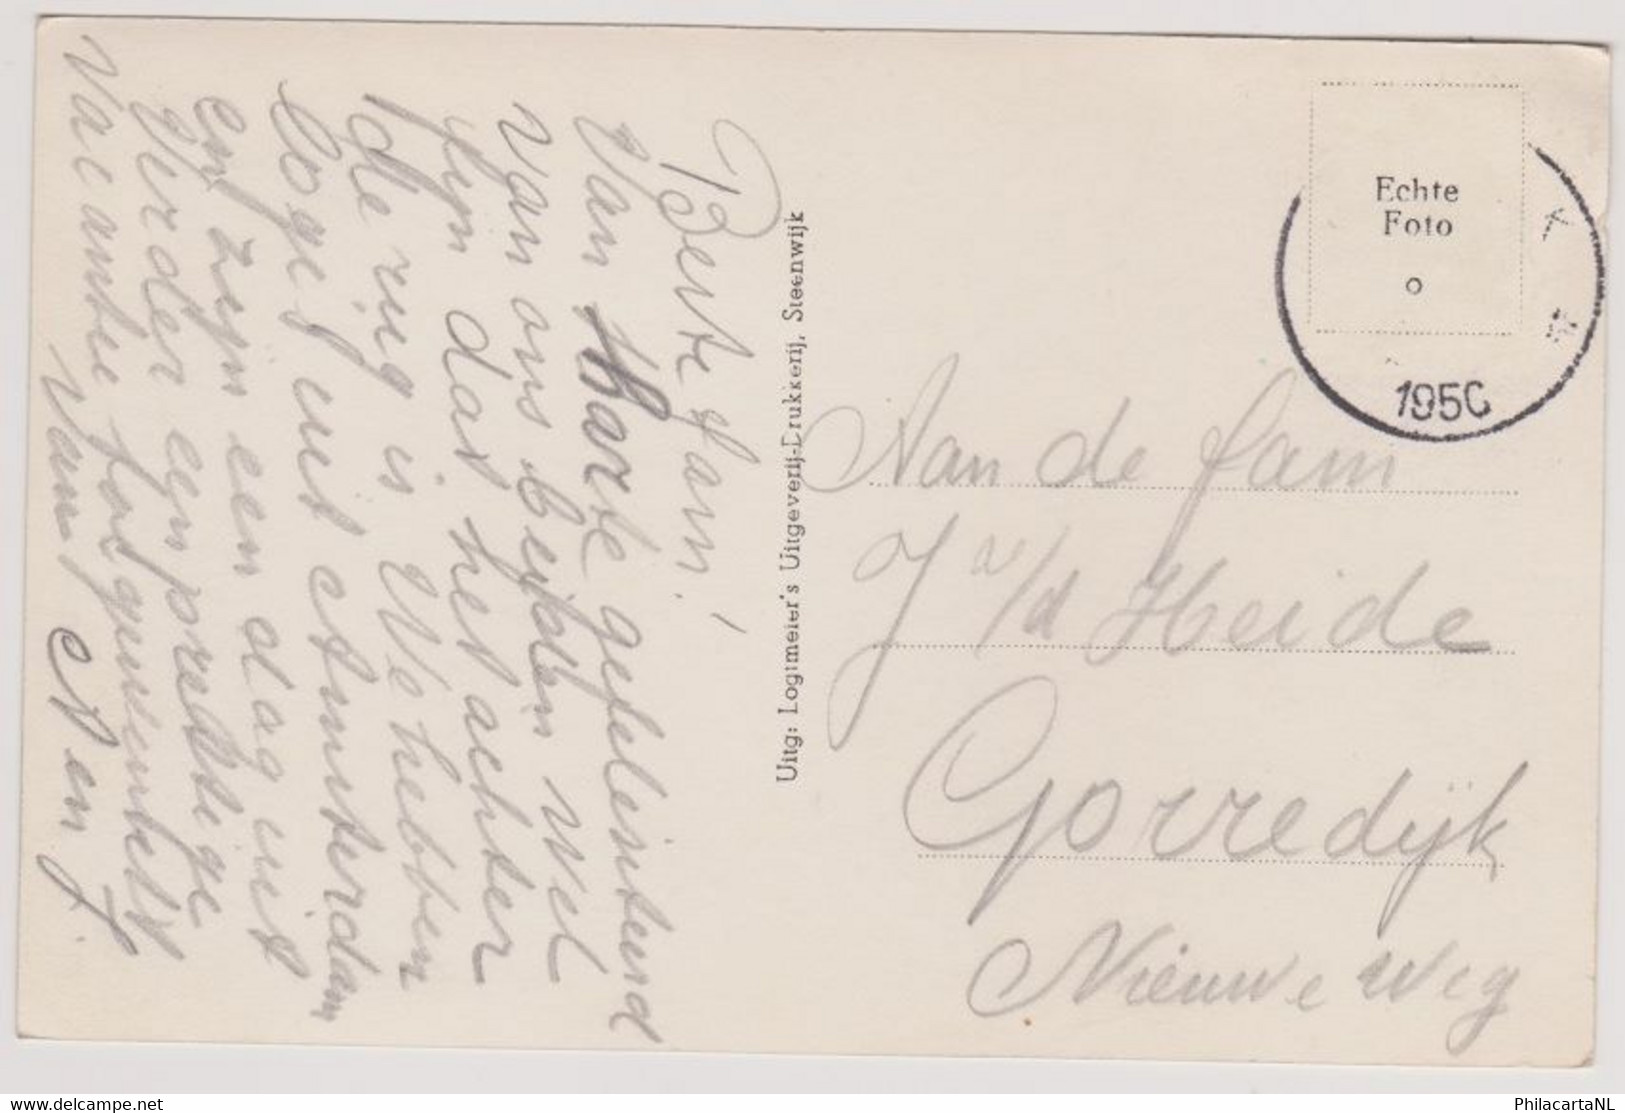 Beste fam!
Van Harte gefeliciteerd
van ons beiden wel
fijn dat het achter
de rug is We hebben
logés uit Amsterdam
en zijn een dag uit
Verder een prettige
Vacantie toegewenscht
van
Uitg: Logtmeier's Uitgeverij-Drukkerij, Steenwijk
Echte
Foto
1950
Aan de fam
J v/d Heide
Gorredijk
Nieuwe Weg
PhilacartaNL
www.delcampe.net